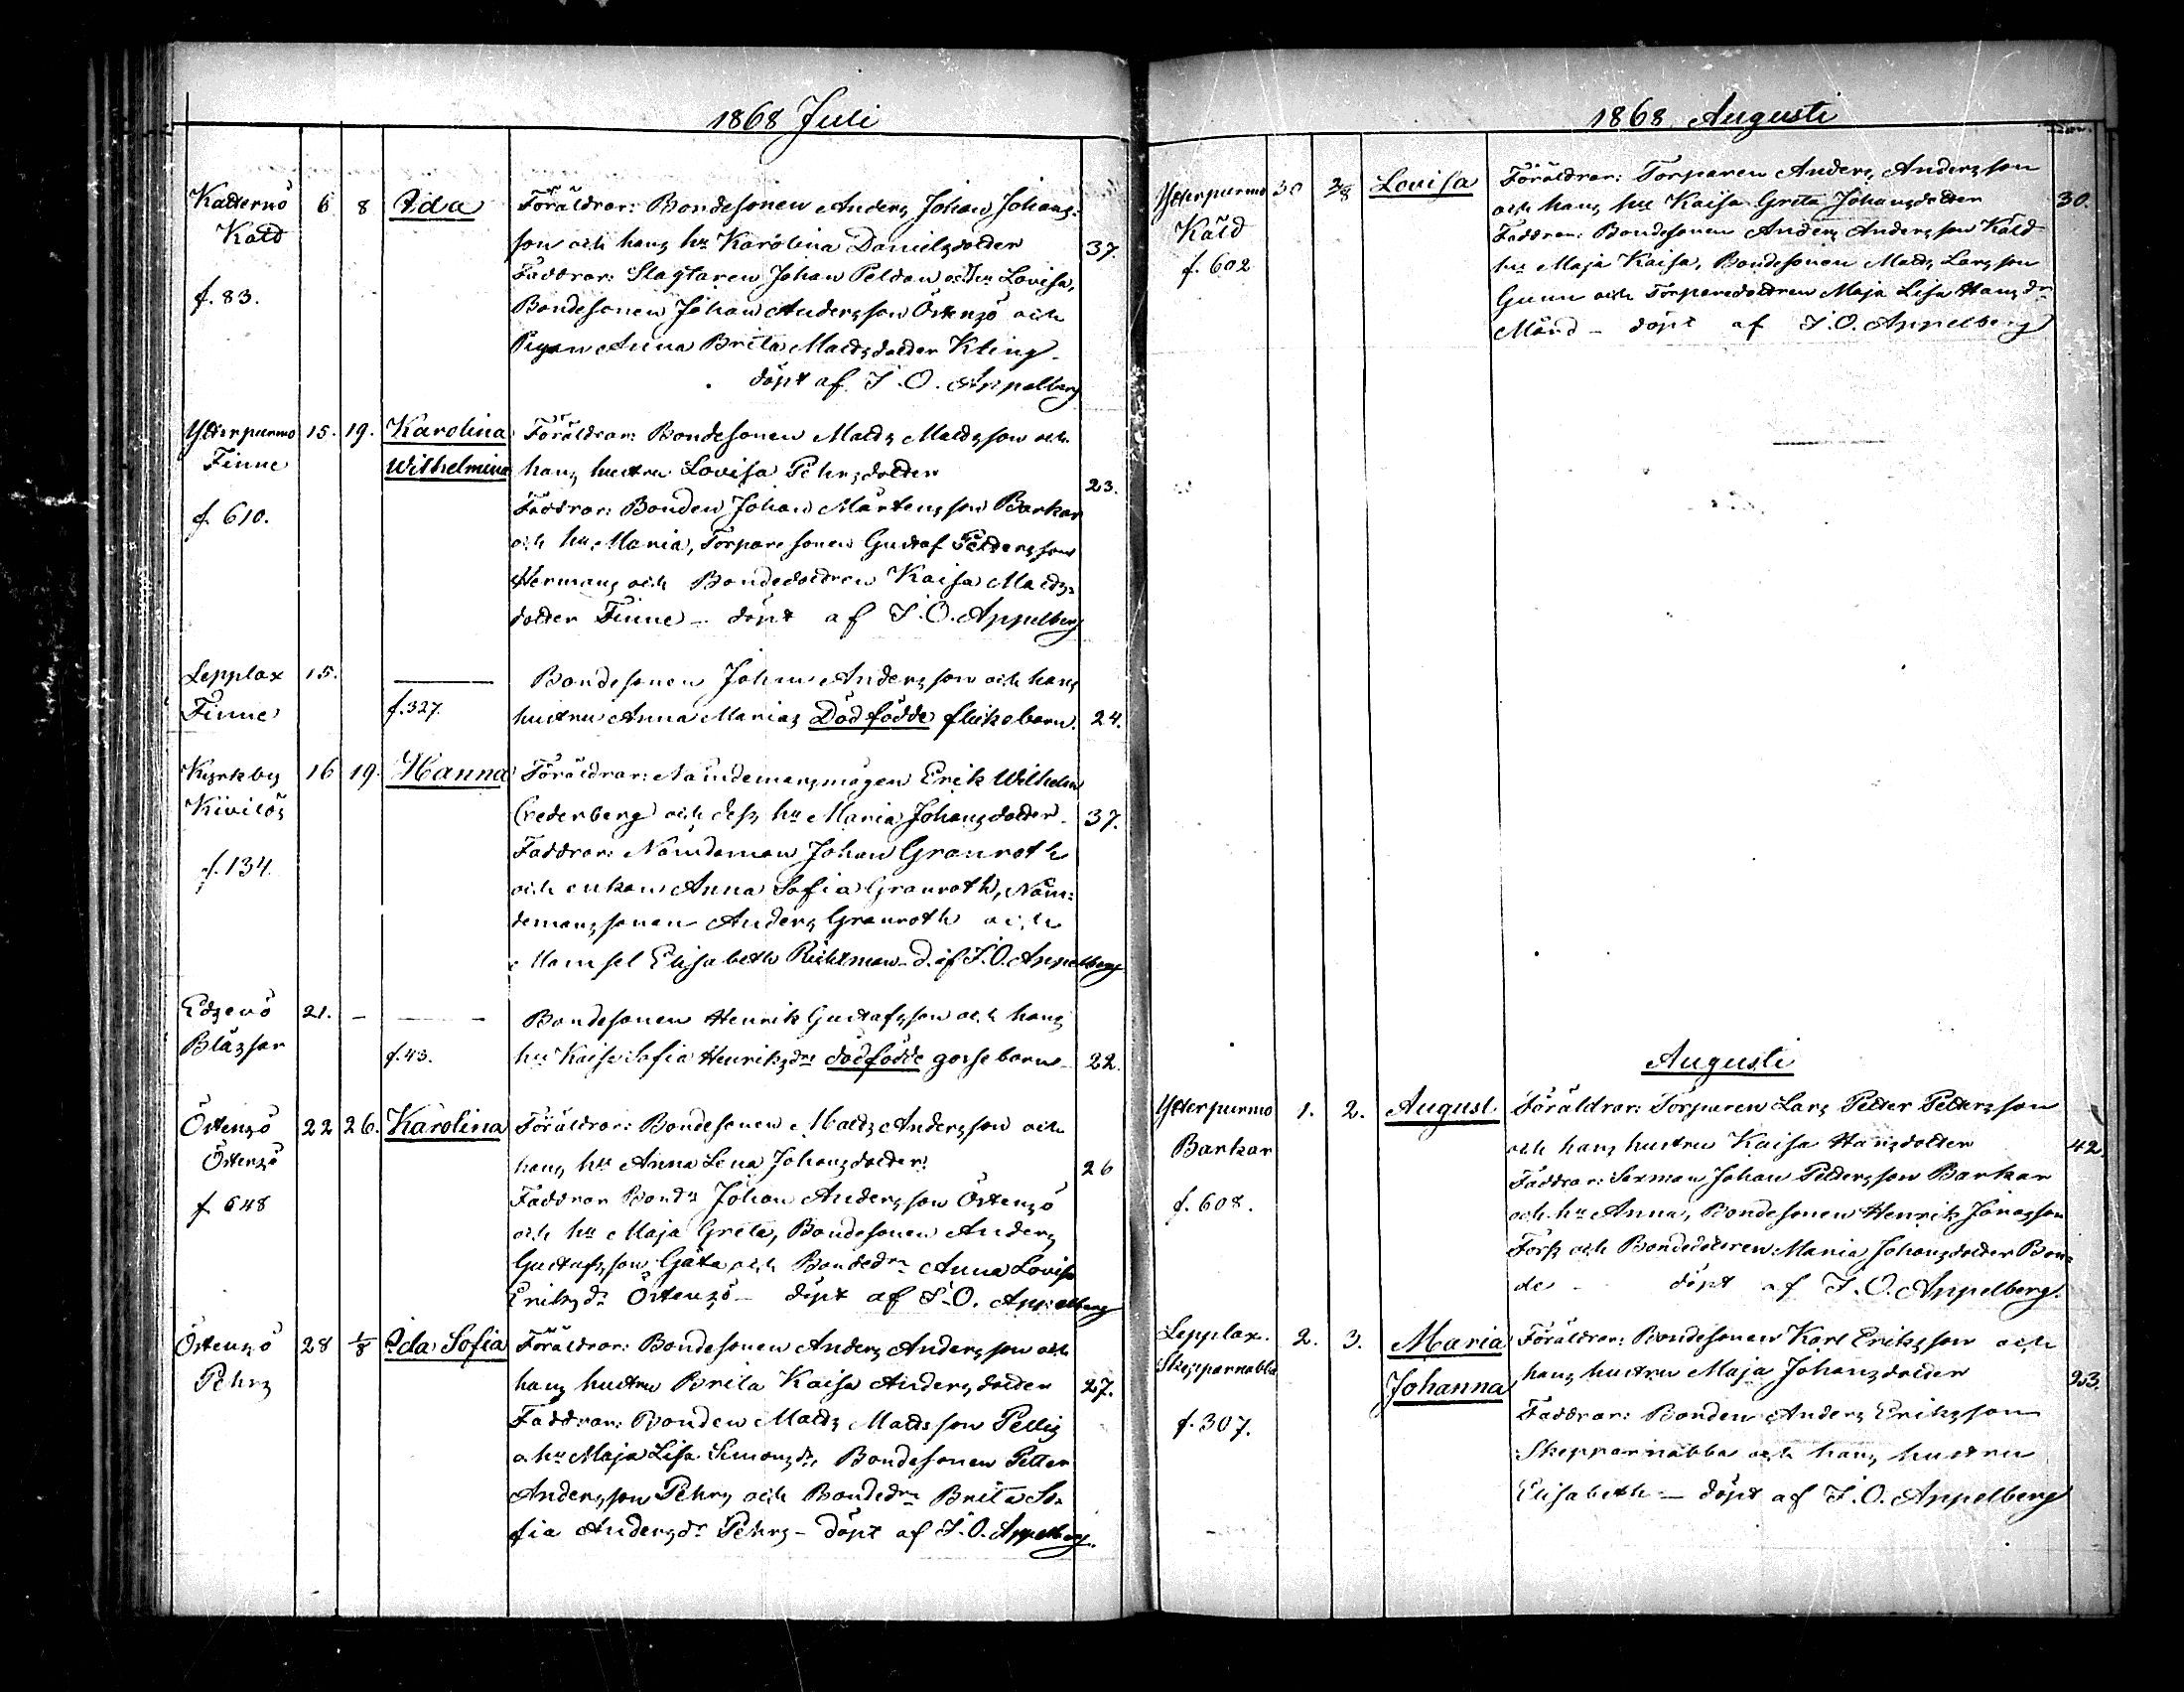 1868 Juli
Katternö 6 8 Ida Föräldrar: Bondesonen Anders Johan Johans-
Kåld son och hans hu Karolina Danielsdotter 37.
Faddrar: Slagtaren Johan Peldan o. hu Lovisa,
f. 83. Bondesonen Johan Andersson Östensö och
Pigan Anna Brita Mattsdotter Kling
döpt af J. O. Appelberg
Ytterpurmo 15. 19. Karolina Föräldrar: Bondesonen Matts Mattsson och
Finne Wilhelmina hans hustru Lovisa Pehrsdotter 23.
f. 610. Faddrar: Bonden Johan Mårtensson Barkar
och hu Maria, Torparesonen Gustaf Pettersson
Hermans och Bondedottren Kaisa Matts-
dotter Finne – döpt af J. O. Appelberg
Lepplax 15. — Bondesonen Johan Andersson och hans
Finne f. 327. hustru Anna Marias Dödfödde flickobarn. 24.
Kyrkby 16 19. Hanna Föräldrar: Nämndemansmågen Erik Wilhelm
Kiviløs Cederberg och dess hu Maria Johansdotter 37.
f. 134. Faddrar: Nämdeman Johan Granroth
och enkan Anna Sofia Granroth, Näm-
demanssonen Anders Granroth och
Mamsel Elisabeth d. af J. O. Appelberg
Edsevö 21. – — Bondesonen Henrik Gustafsson och hans
Blässar f. 43. hu Kaisa Sofia Henriksdrs dödfödde gossebarn 22.
Östensö 22 26. Karolina Föräldrar: Bondesonen Matts Andersson och
Östensö hans hu Anna Lena Johansdotter 26
f. 648 Faddrar Bond. Johan Andersson Östensö
och hu Maja Greta, Bondesonen Anders
Gustafsson Gäta och Bondedrn Anna Lovisa
Eriksdr Östensö – döpt af J. O. Appelberg
Östensö 28 1/8 Ida Sofia Föräldrar: Bondesonen Anders Andersson och
Pehrs hans hustru Brita Kaisa Andersdotter 27.
Faddrar: Bonden Matts Mattsson Pellis
o. hu Maja Lisa Simonsdr, Bondesonen Petter
Andersson Pehrs och Bondedrn Brita So-
fia Andersdr Pehrs – döpt af J. O. Appelberg.
1868 Augusti
Ytterpurmo 30 2/8 Lovisa Föräldrar: Torparen Anders Andersson
Kåld och hans hu Kaisa Greta Johansdotter 30.
f. 602 Faddrar: Bondesonen Anders Andersson Kåld
hu Maja Kaisa, Bondesonen Matts Larsson
Gunn och Torparedottren Maja Lisa Hansdr
Mård – döpt af J. O. Appelberg
Augusti
Ytterpurmo 1. 2. August Föräldrar: Torparen Lars Petter Pettersson
Barkar och hans hustru Kaisa Hansdotter 42.
f. 608. Faddrar: Sexman Johan Pettersson Barkar
och hu Anna, Bondesonen Henrik Jonasson
Forss och Bondedottren Maria Johansdotter Bon-
de – döpt af J. O. Appelberg.
Lepplax. 2. 3. Maria Föräldrar: Bondesonen Karl Eriksson och
Skepparnabba Johanna hans hustru Maja Johansdotter 23.
f. 307. Faddrar: Bonden Anders Eriksson
Skepparnabba och hans hustru
Elisabeth – döpt af J. O. Appelberg